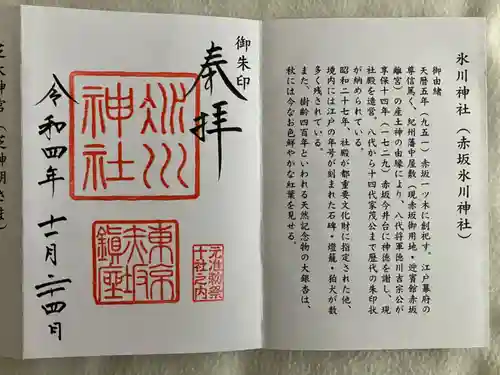 氷川神社(赤坂氷川神社)
御由緒
天暦五年(九五一)赤坂一ツ木に創祀す。江戸幕府の
尊信篤く、紀州藩中屋敷(現赤坂御用地・迎賓館赤坂
離宮)の産土神の由縁により、八代将軍徳川吉宗公が
享保十四年(一七二九)赤坂今井台に神徳を謝し、現
社殿を造営。八代から十四代家茂公まで歴代の朱印状
が納められている。
昭和二十七年、社殿が都重要文化財に指定された他、
境内には江戸の年号が刻まれた石碑・燈籠・狛犬が数
多く残されている。
また、樹齢四百年といわれる天然記念物の大銀杏は、
秋には今なお色鮮やかな紅葉を見せる。
御朱印
奉拝
氷川
神社
東京
赤坂
鎮座
元准勅祭
十社之内
令和四年 十一月二十四日
芝大神宮(芝神明さま)